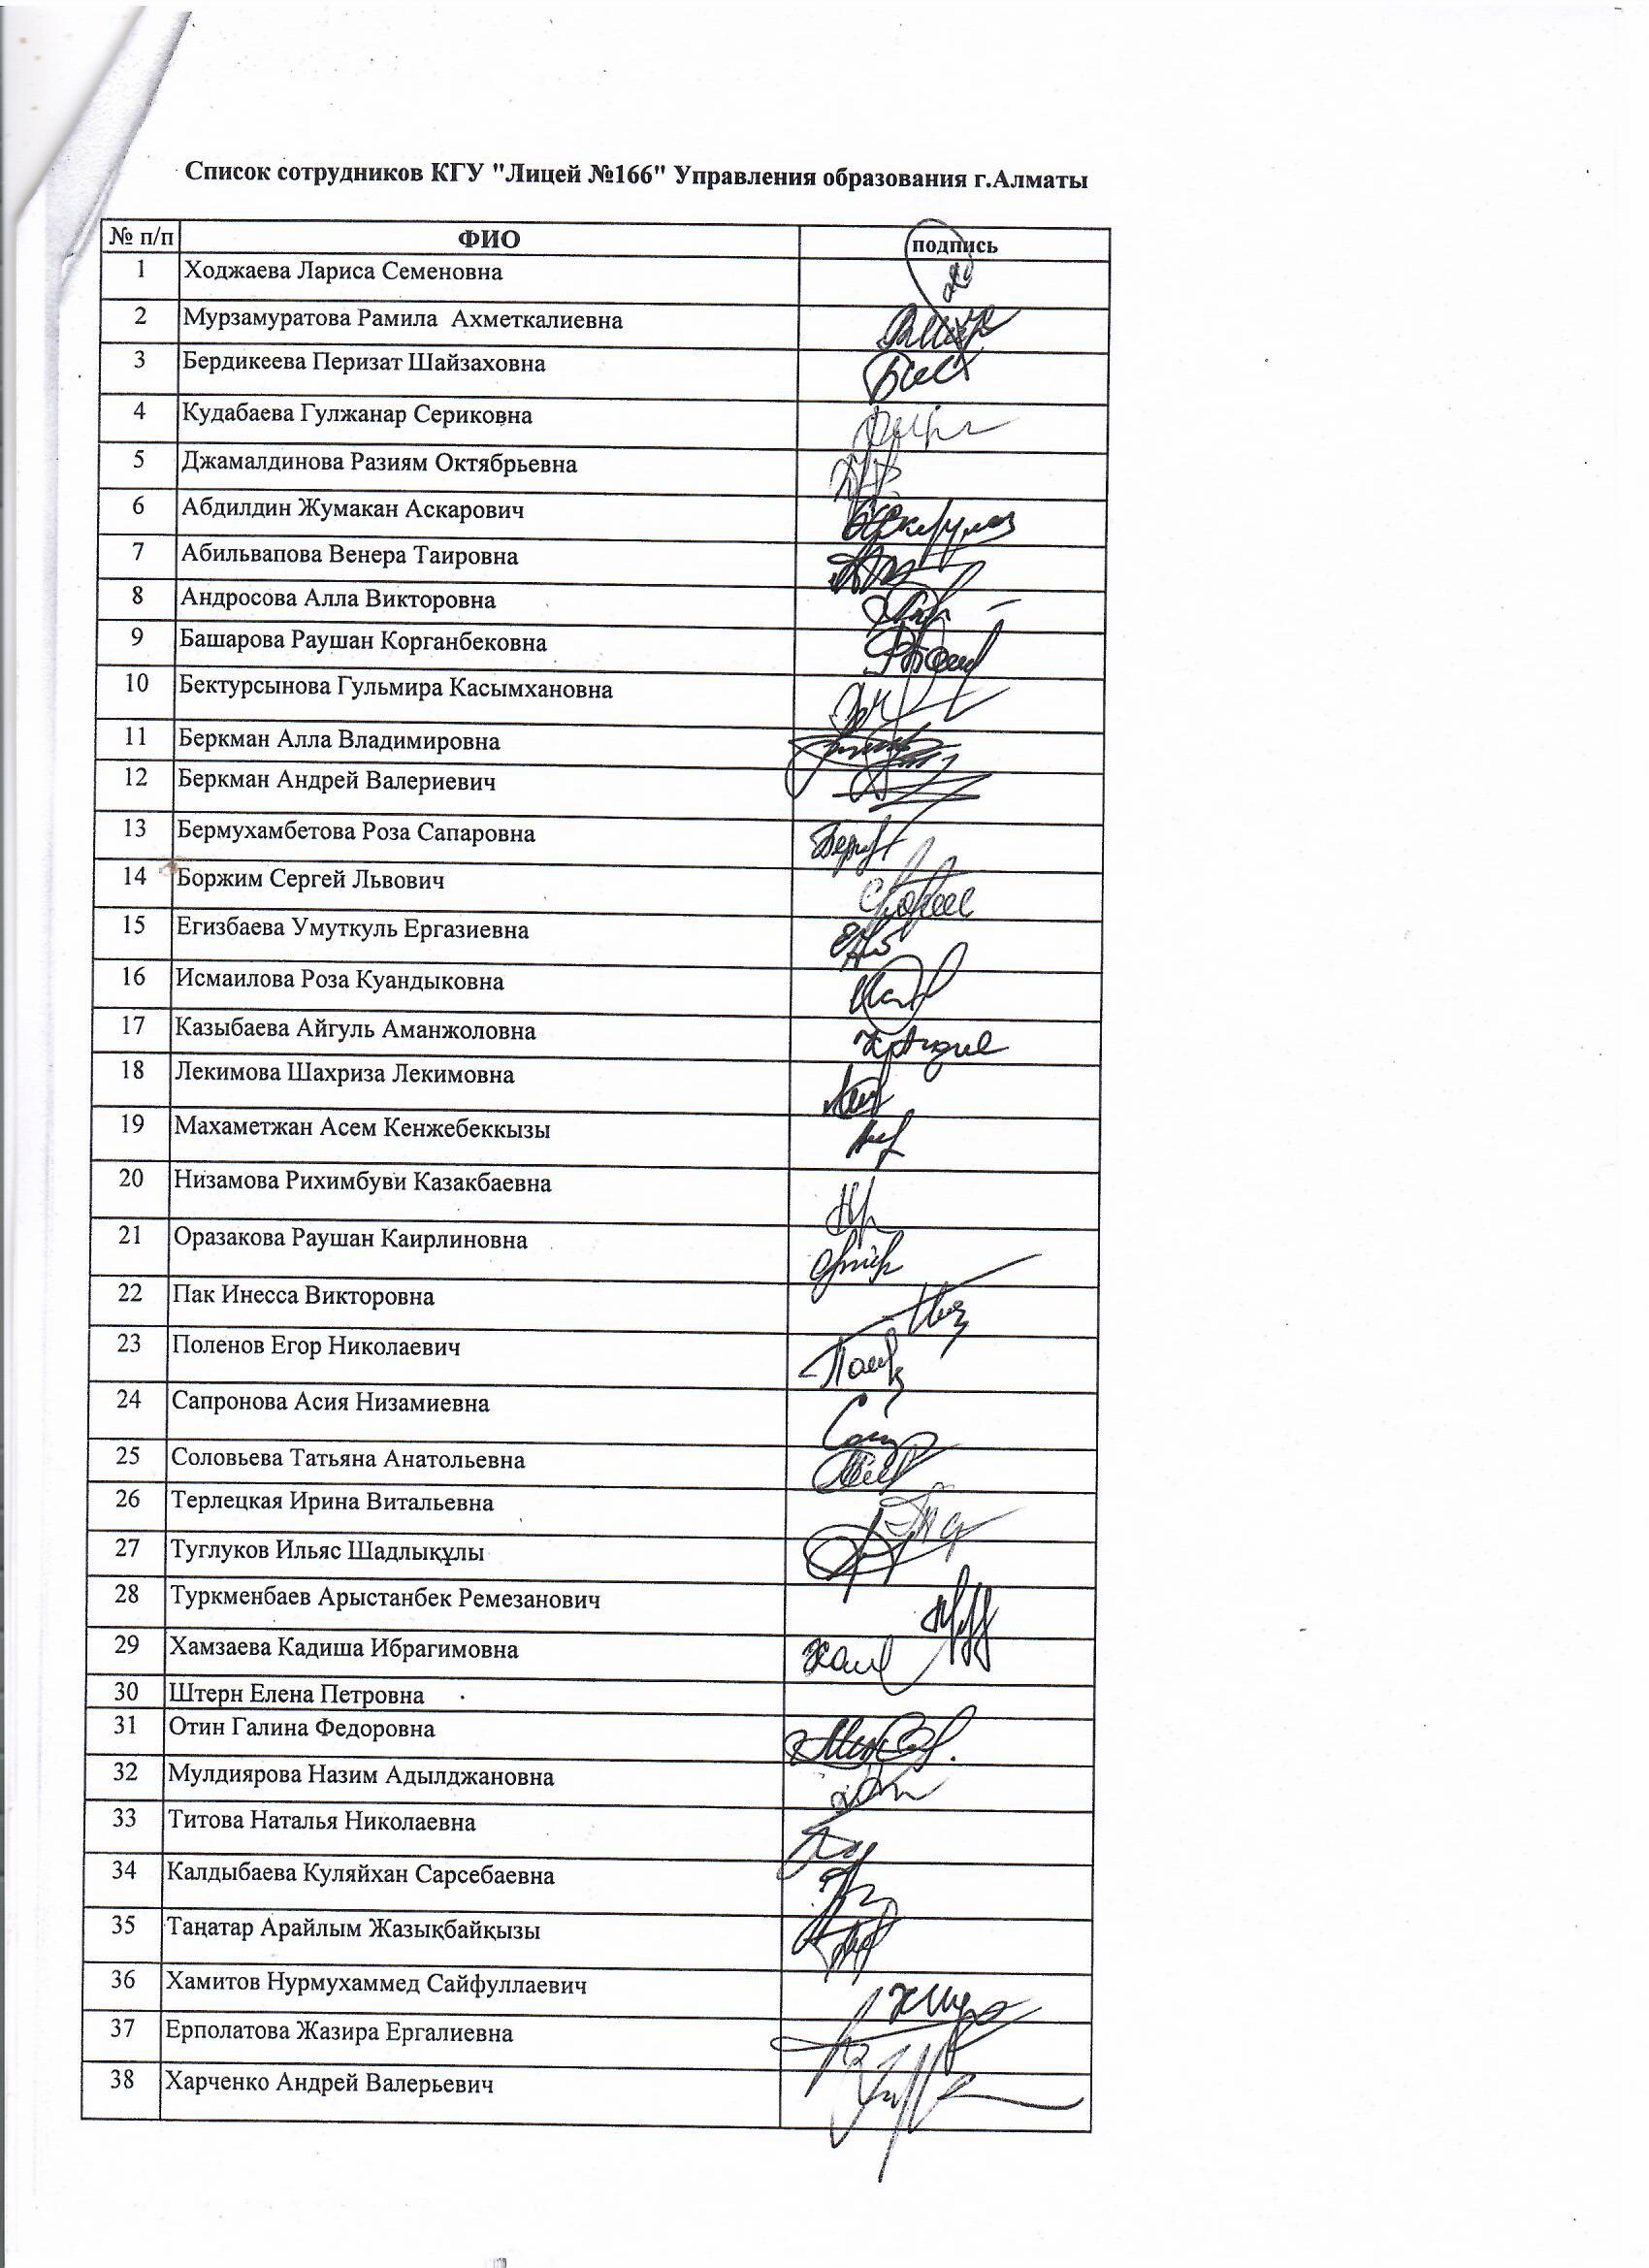 Список сотрудников КГУ "Лицей №166" Управления образования г.Алматы
№ п/п ФИО подпись
1 Ходжаева Лариса Семеновна
2 Мурзамуратова Рамила Ахметкалиевна
3 Бердикеева Перизат Шайзаховна
4 Кудабаева Гулжанар Сериковна
5 Джамалдинова Разиям Октябрьевна
6 Абдилдин Жумакан Аскарович
7 Абильвапова Венера Таировна
8 Андросова Алла Викторовна
9 Башарова Раушан Корганбековна
10 Бектурсынова Гульмира Касымхановна
11 Беркман Алла Владимировна
12 Беркман Андрей Валериевич
13 Бермухамбетова Роза Сапаровна
14 Боржим Сергей Львович
15 Егизбаева Умуткуль Ергазиевна
16 Исмаилова Роза Куандыковна
17 Казыбаева Айгуль Аманжоловна
18 Лекимова Шахриза Лекимовна
19 Махаметжан Асем Кенжебеккызы
20 Низамова Рихимбуви Казакбаевна
21 Оразакова Раушан Каирлиновна
22 Пак Инесса Викторовна
23 Поленов Егор Николаевич
24 Сапронова Асия Низамиевна
25 Соловьева Татьяна Анатольевна
26 Терлецкая Ирина Витальевна
27 Туглуков Ильяс Шадлықұлы
28 Туркменбаев Арыстанбек Ремезанович
29 Хамзаева Кадиша Ибрагимовна
30 Штерн Елена Петровна
31 Отин Галина Федоровна
32 Мулдиярова Назим Адылджановна
33 Титова Наталья Николаевна
34 Калдыбаева Куляйхан Сарсебаевна
35 Таңатар Арайлым Жазықбайқызы
36 Хамитов Нурмухаммед Сайфуллаевич
37 Ерполатова Жазира Ергалиевна
38 Харченко Андрей Валерьевич